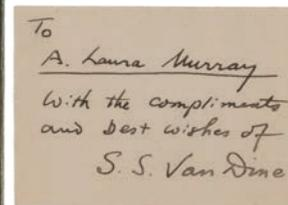 To
A. Laura Murray
With the compliments
and best wishes of
S. S. Van Dine